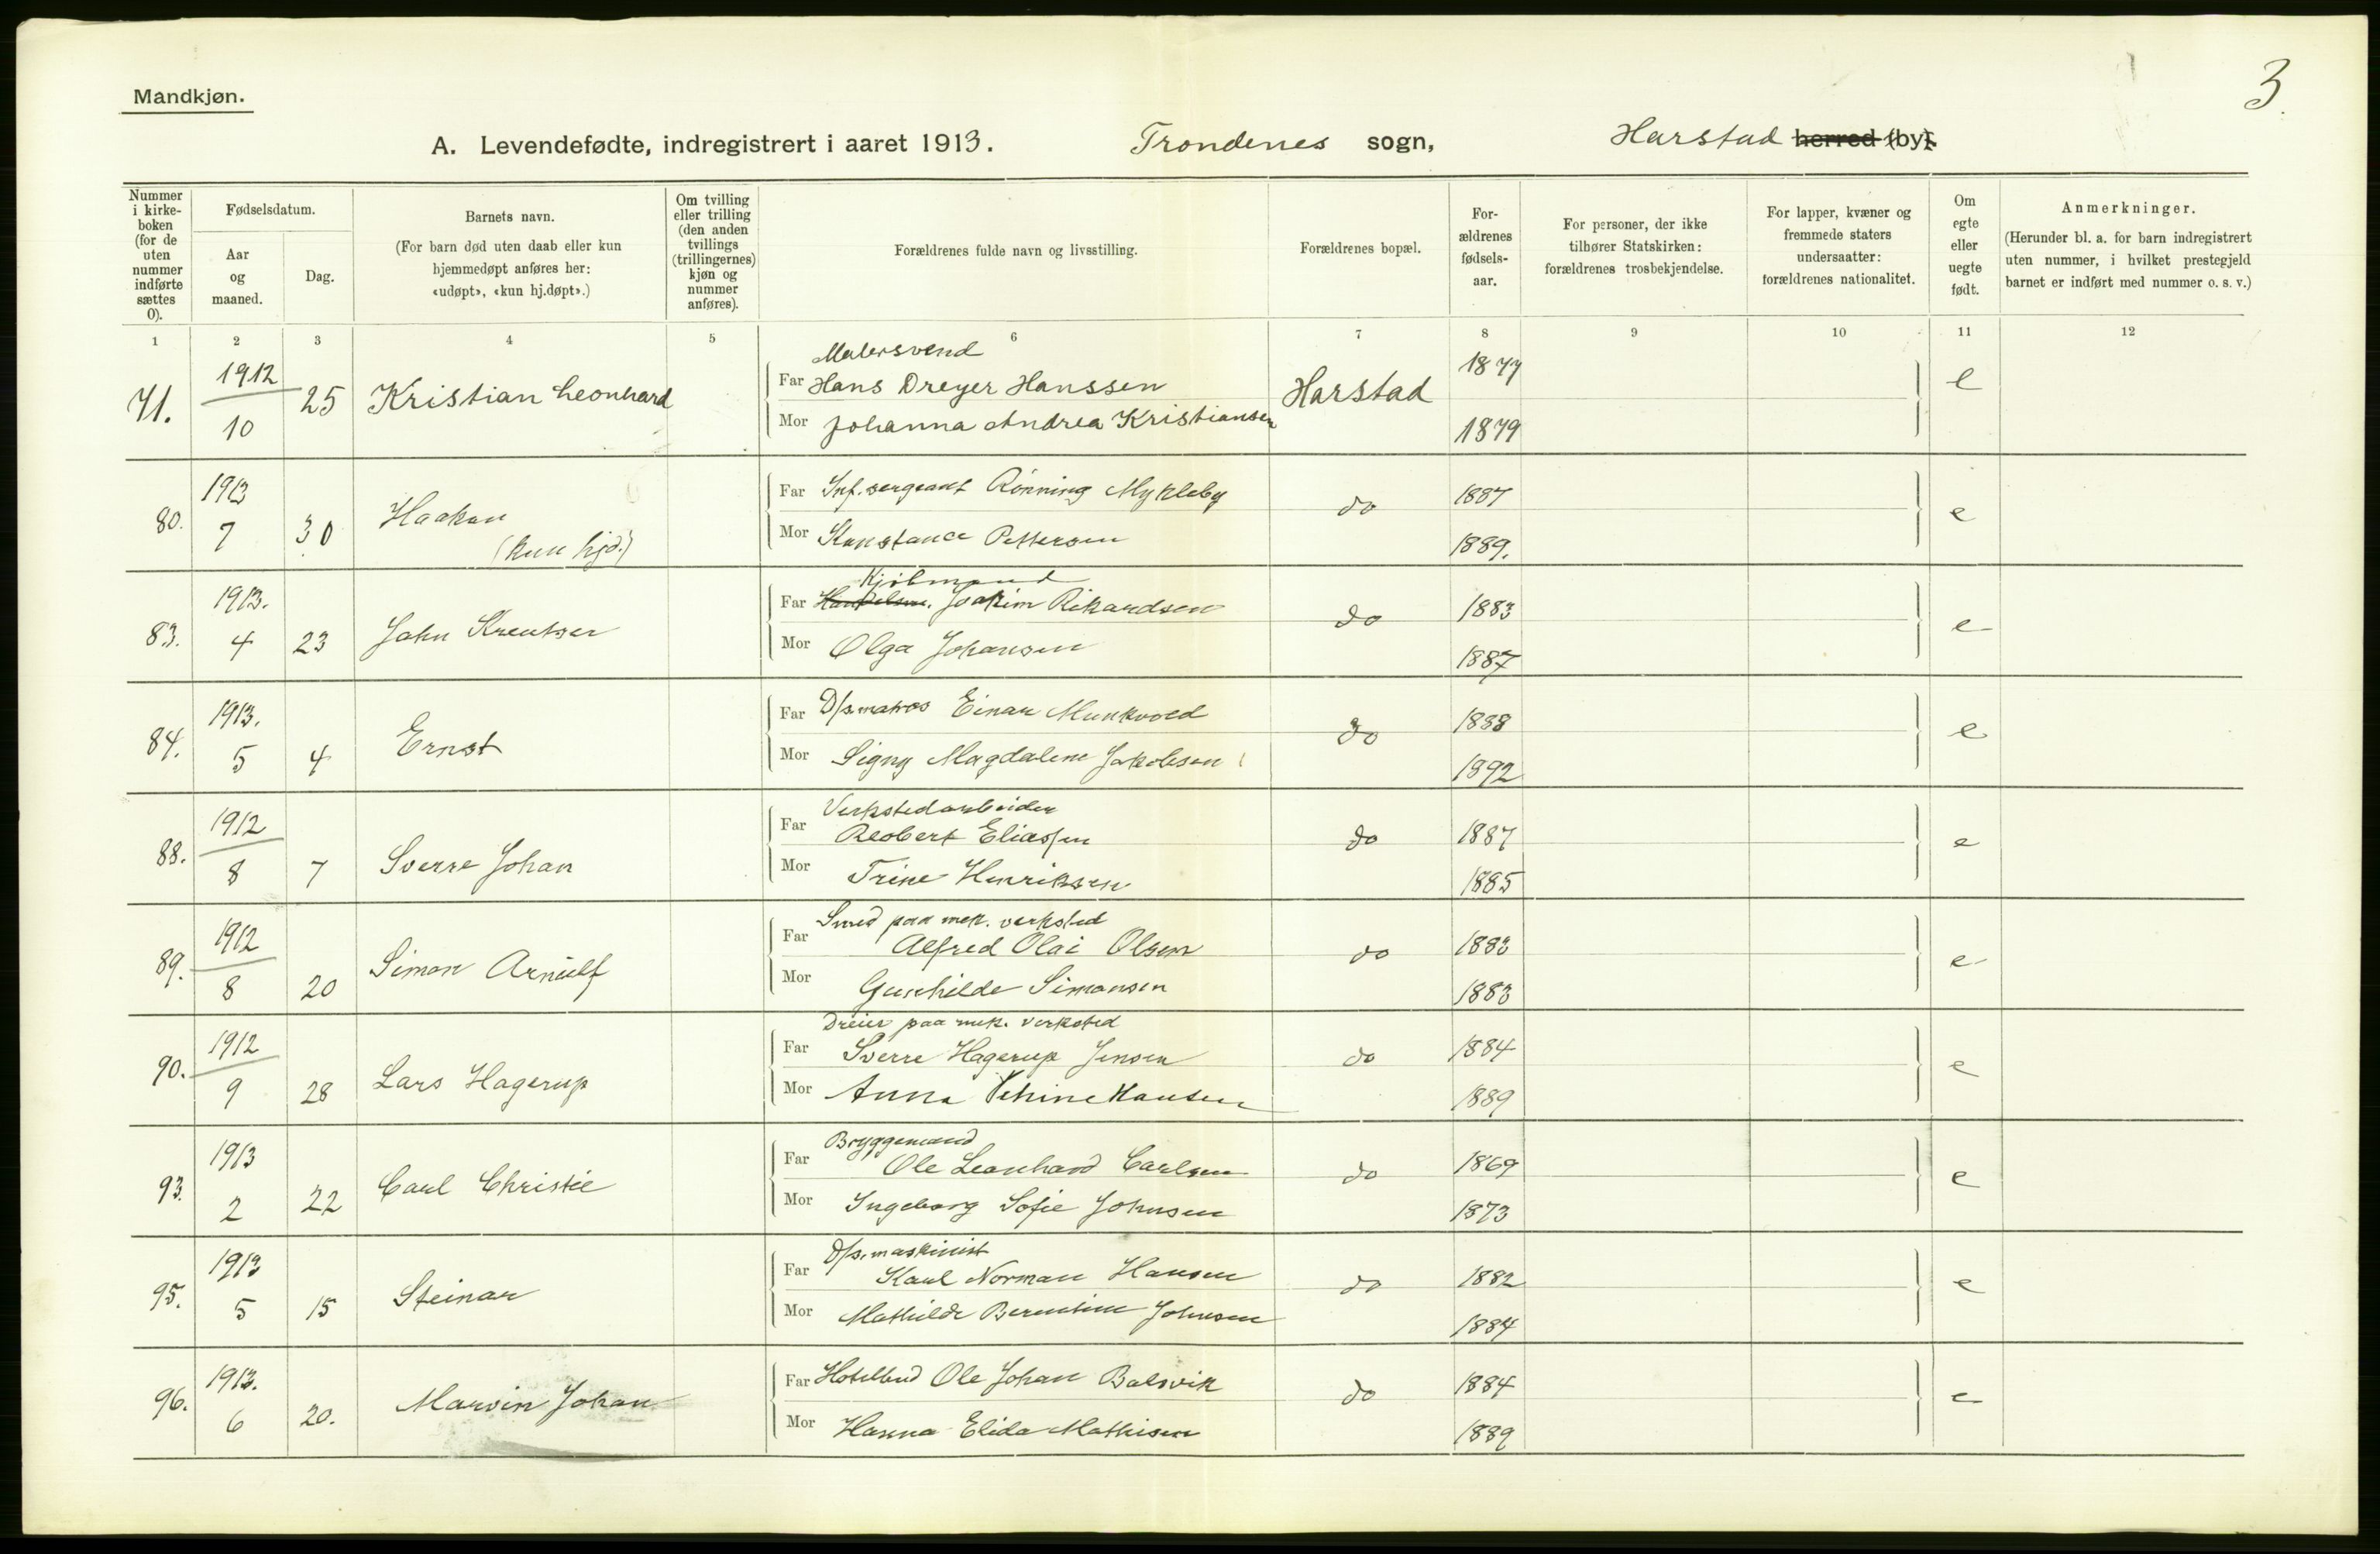 3.
Mandkjøn.
A. Levendefødte, indregistrert i aaret 1913. Trondenes sogn, Harstad herred (by).
Nummer i kirke-boken (for de uten nummer indførte sættes 0).
Fødselsdatum.
Aar og maaned.
Dag.
Barnets navn.
(For barn død uten daab eller kun hjemmedøpt anføres her: «udøpt», «kun hj.døpt».)
Om tvilling eller trilling (den anden tvillings (trillingernes) kjøn og nummer anføres).
Forældrenes fulde navn og livsstilling.
Forældrenes bopæl.
For-ældrenes fødsels-aar.
For personer, der ikke tilhører Statskirken: forældrenes trosbekjendelse.
For lapper, kvæner og fremmede staters undersaatter: forældrenes nationalitet.
Om egte eller uegte født.
Anmerkninger.
(Herunder bl. a. for barn indregistrert uten nummer, i hvilket prestegjeld barnet er indført med nummer o. s. v.)
1 2 3 4 5 6 7 8 9 10 11 12
Malersvend
71. 1912 10 25 Kristian Leonhard Far Hans Dreyer Hanssen Harstad 1877 e
Mor Johanna Andrea Kristiansen 1879
80. 1913 7 30 Haakon (kun hjd.) Far Inf. sergeant Rønning Mykleby do 1887 e
Mor Konstance Pettersen 1889.
Kjøbmand
83. 1913. 4 23 John Kreutzer Far Handelsm. Joakim Rikardsen do 1883 e
Mor Olga Johansen 1887
84. 1913. 5 4 Ernst Far D/s.matros Einar Munkvold do 1888 e
Mor Signy Magdalene Jakobsen 1892
Verkstedarbeider
88. 1912 8 7 Sverre Johan Far Robert Eliassen do 1887 e
Mor Trine Henriksen 1885
Smed paa mek. verksted
89. 1912 8 20 Simon Arnulf Far Alfred Olai Olsen do 1883 e
Mor Gunhilde Simonsen 1883
Dreier paa mek. verksted
90. 1912 9 28 Lars Hagerup Far Sverre Hagerup Jensen do 1884 e
Mor Anna Hansen 1889
Bryggemand
93. 1913 2 22 Carl Christie Far Ole Leonhard Carlsen do 1869 e
Mor Ingeborg Sofie Johnsen 1873
D/s.maskinist
95. 1913 5 15 Steinar Far Karl Norman Hansen do 1882 e
Mor Mathilde Berentine Johnsen 1884
96. 1913. 6 20. Marvin Johan Far Hotelbud Ole Johan Balsvik do 1884 e
Mor Hanna Elida Mathisen 1889